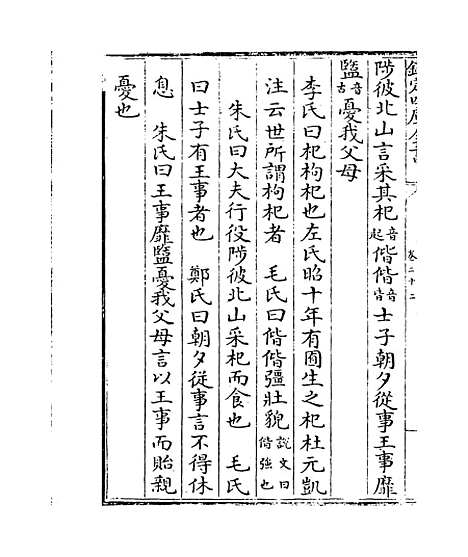 欽定四庫全書
卷二十二
陟彼北山言采其杞音起偕偕音皆士子朝夕從事王事靡
盬音古憂我父母
李氏曰杞枸杞也左氏昭十年有圃生之杞杜元凱
注云世所謂枸杞者　毛氏曰偕偕彊壯貌説文曰偕強也
朱氏曰大夫行役陟彼北山采杞而食也　毛氏
曰士子有王事者也　鄭氏曰朝夕從事言不得休
息　朱氏曰王事靡盬憂我父母言以王事而貽親
憂也